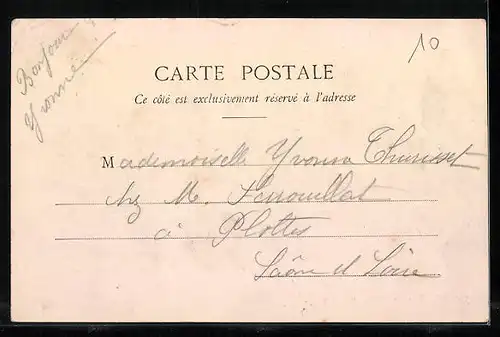 Bonjour
Yvonne
10
CARTE POSTALE
Ce côté est exclusivement réservé à l'adresse
Mademoiselle Yvonne Thurisset
chez M.
à Plottes
Saône et Loire